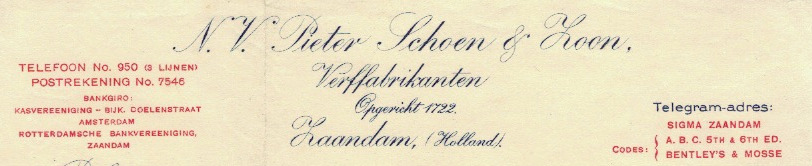 N.V. Pieter Schoen & Zoon.
Verffabrikanten
Opgericht 1722.
Zaandam, (Holland).
TELEFOON No. 950 (3 LIJNEN)
POSTREKENING No. 7546
BANKGIRO:
KASVEREENIGING – BIJK. DOELENSTRAAT
AMSTERDAM
ROTTERDAMSCHE BANKVEREENIGING,
ZAANDAM
Telegram-adres:
SIGMA ZAANDAM
CODES: { A. B. C. 5TH & 6TH ED.
BENTLEY'S & MOSSE